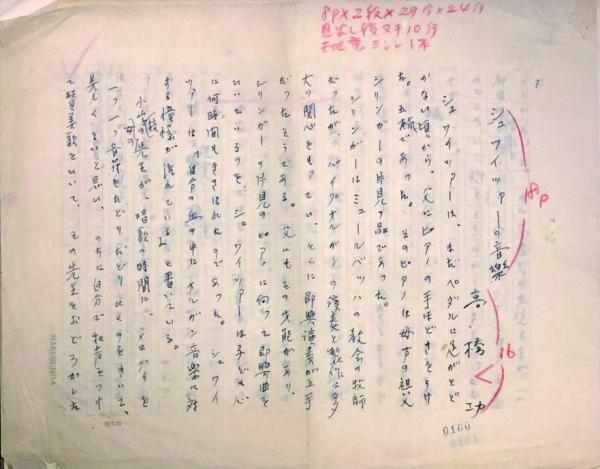 8P×2段×29行×24字
見出し 10行
シュワイツァーの音楽
18P
高橋功
16
シュワイツァーは、まだペダルに足がとど
かない頃から、父にピアノの手ほどきをうけ
た。五歳であった。そのピアノは母方の祖父
シリンガーの片見の品であった。
シリンガーはミュールバッハの教会の牧師
だったが、パイプオルガンの演奏と製作に多
大の関心をもっていて、とくに即興演奏が上手
だったそうである。父にもその才能があり、
シリンガーの片見のピアノに向って即興曲を
ひいているのを、シュワイツァーは子ども心
に何時間もききほれたのであった。シュワイ
ツァーは「自分の血の中にオルガン音楽に対
する憧憬が流れている」と書いている。
小学校の女の先生が、唱歌の時間に、
一つ一つ音符をたどりたどりひくのをきいて、
美しくないと思い、のちに自分で和音をつけ
て讃美歌をひいて、その先生をおどろかした
0160